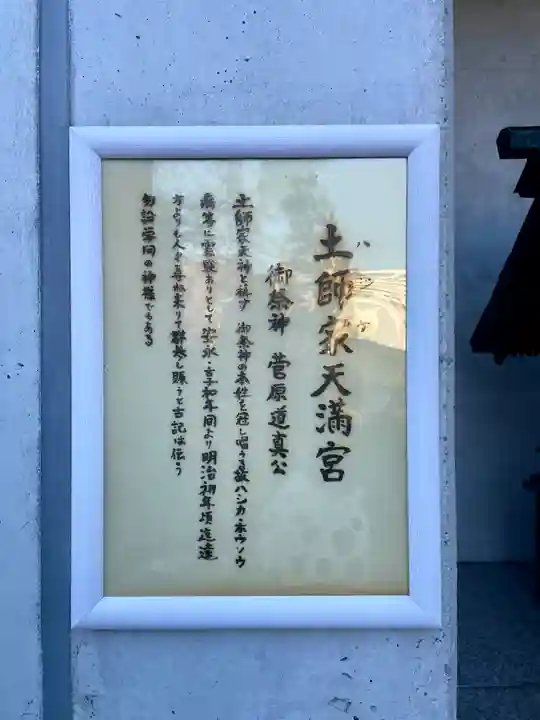 ハシケ
土師家天満宮
御祭神 菅原道真公
土師家天神と称す 御祭神の本姓を冠し唱うる故ハシカ・ホウソウ
病等に霊験ありとして安永・享和年間より明治初年頃迄遠
方よりも人々尋ね来りて群参し賑うと古記は伝う
勿論学問の神様でもある